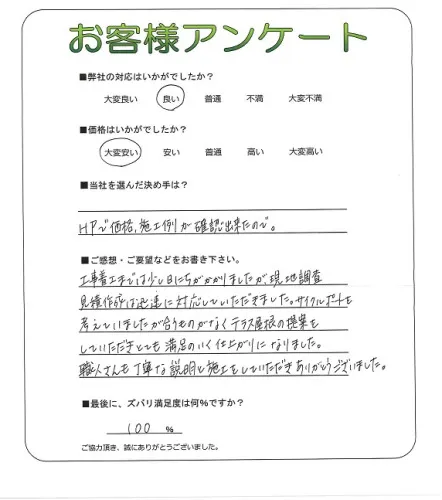 お客様アンケート
■弊社の対応はいかがでしたか？
大変良い 良い 普通 不満 大変不満
■価格はいかがでしたか？
大変安い 安い 普通 高い 大変高い
■当社を選んだ決め手は？
HPで価格,施工例が確認出来たので。
■ご感想・ご要望などをお書き下さい。
工事着工までは少し日にちがかかりましたが現地調査
見積作成は迅速に対応していただきました。サイクルポートも
考えていましたが合うものがなくテラス屋根の提案を
していただきとても満足のいく仕上がりになりました。
職人さんも丁寧な説明と施工をしていただきありがとうございました。
■最後に、ズバリ満足度は何%ですか？
100 %
ご協力頂き、誠にありがとうございました。